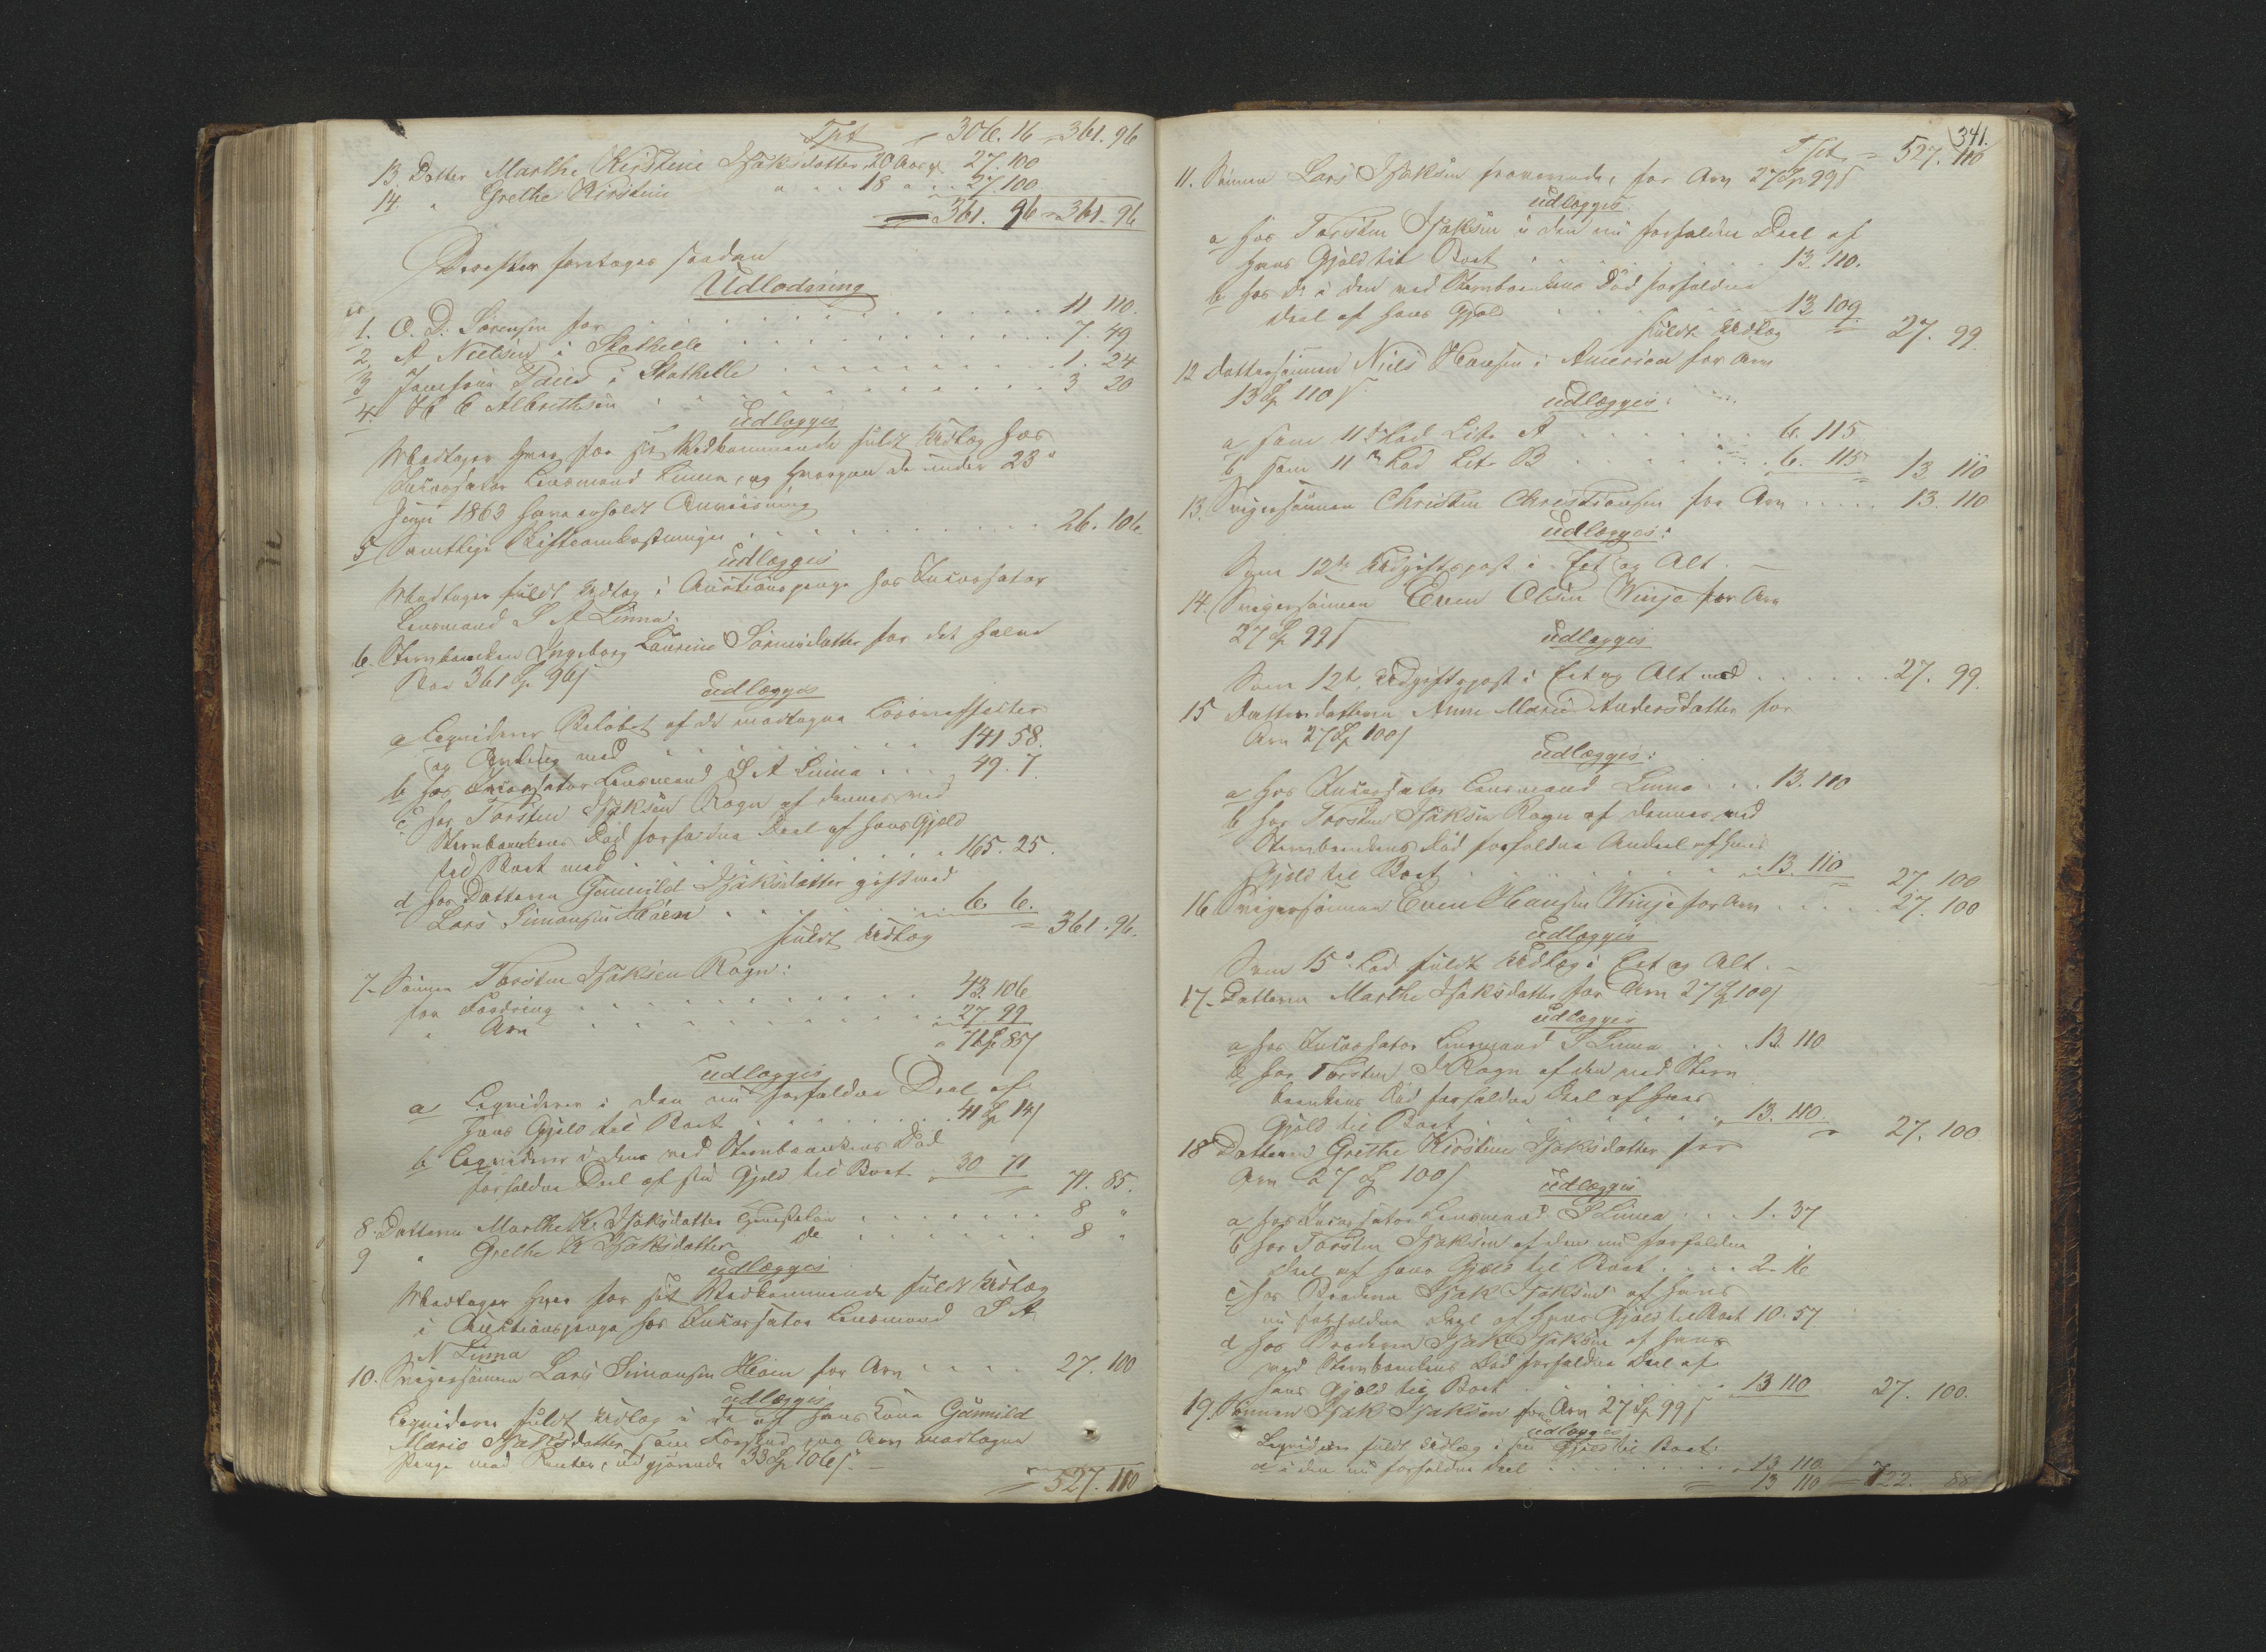 Tpt = 306. 16 = 361. 96
13 Datter Marthe Kirstine Isaksdatter 20 Aar 27. 100
14. " Grethe Kirstine " . . 18 " . . 27. 100
= 361. 96 = 361. 96
Derefter foretages saadan
Udlodning
1. O. D. Sørensen for . . . 11 110.
2, A Nielsen i Stathelle . . . 7. 49
3 Jomfrue i Stathelle . . . 1. 24
4. H C Albrethsen . . . 3 20
udlægges
Modtager hver for sit Vedkommende fuldt Udlæg hos
Incassator Lensmand Linna, og hvorpaa de under 23de
Juni 1863 have erholdt Anviisning
5 Samtlige Skifteomkostninger . . . 26. 106
udlægges
Modtager fuldt Udlæg i Auctionspenge hos Incassator
Lensmand S A Linna.
6. Stervboenken Ingeborg Laurine Sørensdatter for det halve
Boe 361 Sp 96 s
udlægges
a Liqviderer Beløbet af de modtagne Løsøreeffecter
og Andeel med . . . 141 58.
b hos Incassator Lensmand S A Linna . . . 49. 7.
c hos Torsten Isaksen Ragn af dennes ved
Stervboenkens Død forfaldne Deel af hans Gjeld
til Boet med . . . 165. 25.
d hos Datteren Gunnild Isaksdatter gift med
Lars Simonsen Heien . . . 6. 6.
fuldt Udlæg = 361. 96.
7. Sønnen Torsten Isaksen Ragn:
for Fordring . . . 43. 106
" Arv . . . 27. 99
" 71 Sp 85 s
udlægges
a Liqviderer i den nu forfaldne Deel af
hans Gjeld til Boet . . . 41 Sp 14 s
b Liqviderer i den ved Stervboenkens Død
forfaldne Deel af sin Gjeld til Boet . 30 71
= 71. 85.
8. Datteren Marthe K. Isaksdatter . . . 8 "
9 " Grethe K Isaksdatter do . . . 8 "
udlægges
Modtager hver for sit Vedkommende fuldt Udlæg
i Auctionspenge hos Incassator Lensmand S A
N Linna
10. Svigersønnen Lars Simonsen Heien for Arv . . . 27. 100
udlægges
Liqviderer fuldt Udlæg i de af hans Kone Gunnild
Marie Isaksdatter som Forskud paa Arv modtagne
Penge med Renter, udgjørende 33 Sp 106 s. —
= 527. 110
341.
Tpt = 527. 110
11. Sønnen Lars Isaksen fraværende, for Arv 27 Sp 99 s
udlægges
a hos Torsten Isaksen i den nu forfaldne Deel af
hans Gjeld til Boet . . . 13. 110.
b hos Do i den ved Stervboenkens Død forfaldne
Deel af hans Gjeld . . . 13. 109
fuldt Udlæg = 27. 99
12 Dattersønnen Niels Hansen i America for Arv
13 Sp 110 s.
udlægges:
a som 11te Lod Litr A . . . 6. 115
b som 11te Lod Litr B . . . 6. 115 = 13. 110
13. Svigersønnen Christen Christiansen for Arv . . . 13. 110
udlægges:
Som 12te Udgiftspost i Eet og Alt. —
14. Svigersønnen Even Olsen Winje for Arv
27 Sp 99 s
udlægges
Som 12te Udgiftspost i Eet og Alt med . . . 27. 99.
15 Datterdatteren Anne Marie Andersdatter for
Arv 27 Sp 100 s
udlægges:
a hos Incassator Lensmand Linna . . . 13. 110
b hos Torsten Isaksen Ragn af dennes ved
Stervboenkens Død forfaldne Andeel af hans
Gjeld til Boet . . . 13. 110 = 27. 100
16 Svigersønnen Even Hansen Winje for Arv . . . 27. 100
udlægges
Som 15de Lod fuldt Udlæg i Eet og Alt. —
17. Datteren Marthe Isaksdatter for Arv 27 Sp 100 s
udlægges
a hos Incassator Lensmand S Linna . . . 13. 110
b hos Torsten I Ragn af den ved Sterv
boenkens Død forfaldne Deel af hans
Gjeld til Boet . . . 13. 110 = 27. 100
18 Datteren Grethe Kirstine Isaksdatter for
Arv 27 Sp 100 s
udlægges
a hos Incassator Lensmand S Linna . . . 1. 37
b hos Torsten Isaksen af den nu forfaldne
Deel af hans Gjeld til Boet . . . 2. 16
c hos Broderen Isak Isaksen af hans
nu forfaldne Deel af hans Gjeld til Boet 10. 57
d hos Broderen Isak Isaksen af hans
ved Stervboenkens Død forfaldne Deel af
hans Gjeld til Boet . . . 13 110 27. 100.
19. Sønnen Isak Isaksen for Arv 27 Sp 99 s
udlægges
Liqviderer fuldt Udlæg i sin Gjeld til Boet:
a i den nu forfaldne Deel . . . 13 110
= 13 110 = 722. 88